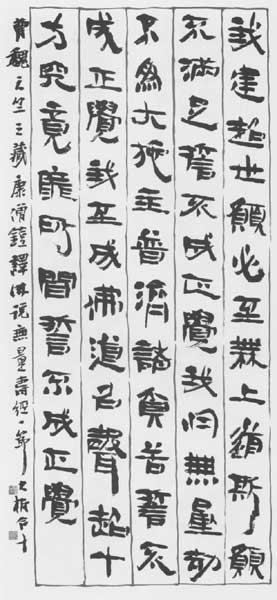 我建超世願必至無上道斯願
不滿足誓不成正覺我於無量劫
不為大施主普濟諸貧苦誓不
成正覺我至成佛道名聲超十
方究竟靡所聞誓不成正覺
曹魏天竺三藏康僧鎧譯佛說無量壽經一節